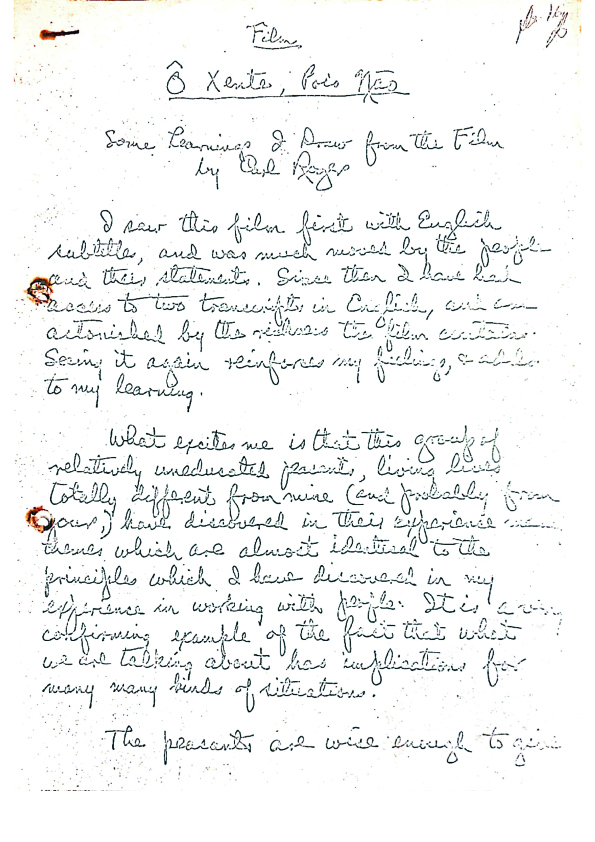 Film
Ô Xente, Pois Não
Some Learnings I Draw from the Film
by Carl Rogers
I saw this film first with English
subtitles, and was much moved by the people
and their statements. Since then I have had
access to two transcripts in English, and am
astonished by the richness the film contains.
Seeing it again reinforces my feelings, & adds
to my learning.
What excites me is that this group of
relatively uneducated peasants, living lives
totally different from mine (and probably from
yours,) have discovered in their experience
themes which are almost identical to the
principles which I have discovered in my
experience in working with people. It is a very
confirming example of the fact that what
we are talking about has implications for
many many kinds of situations.
The peasants are wise enough to give